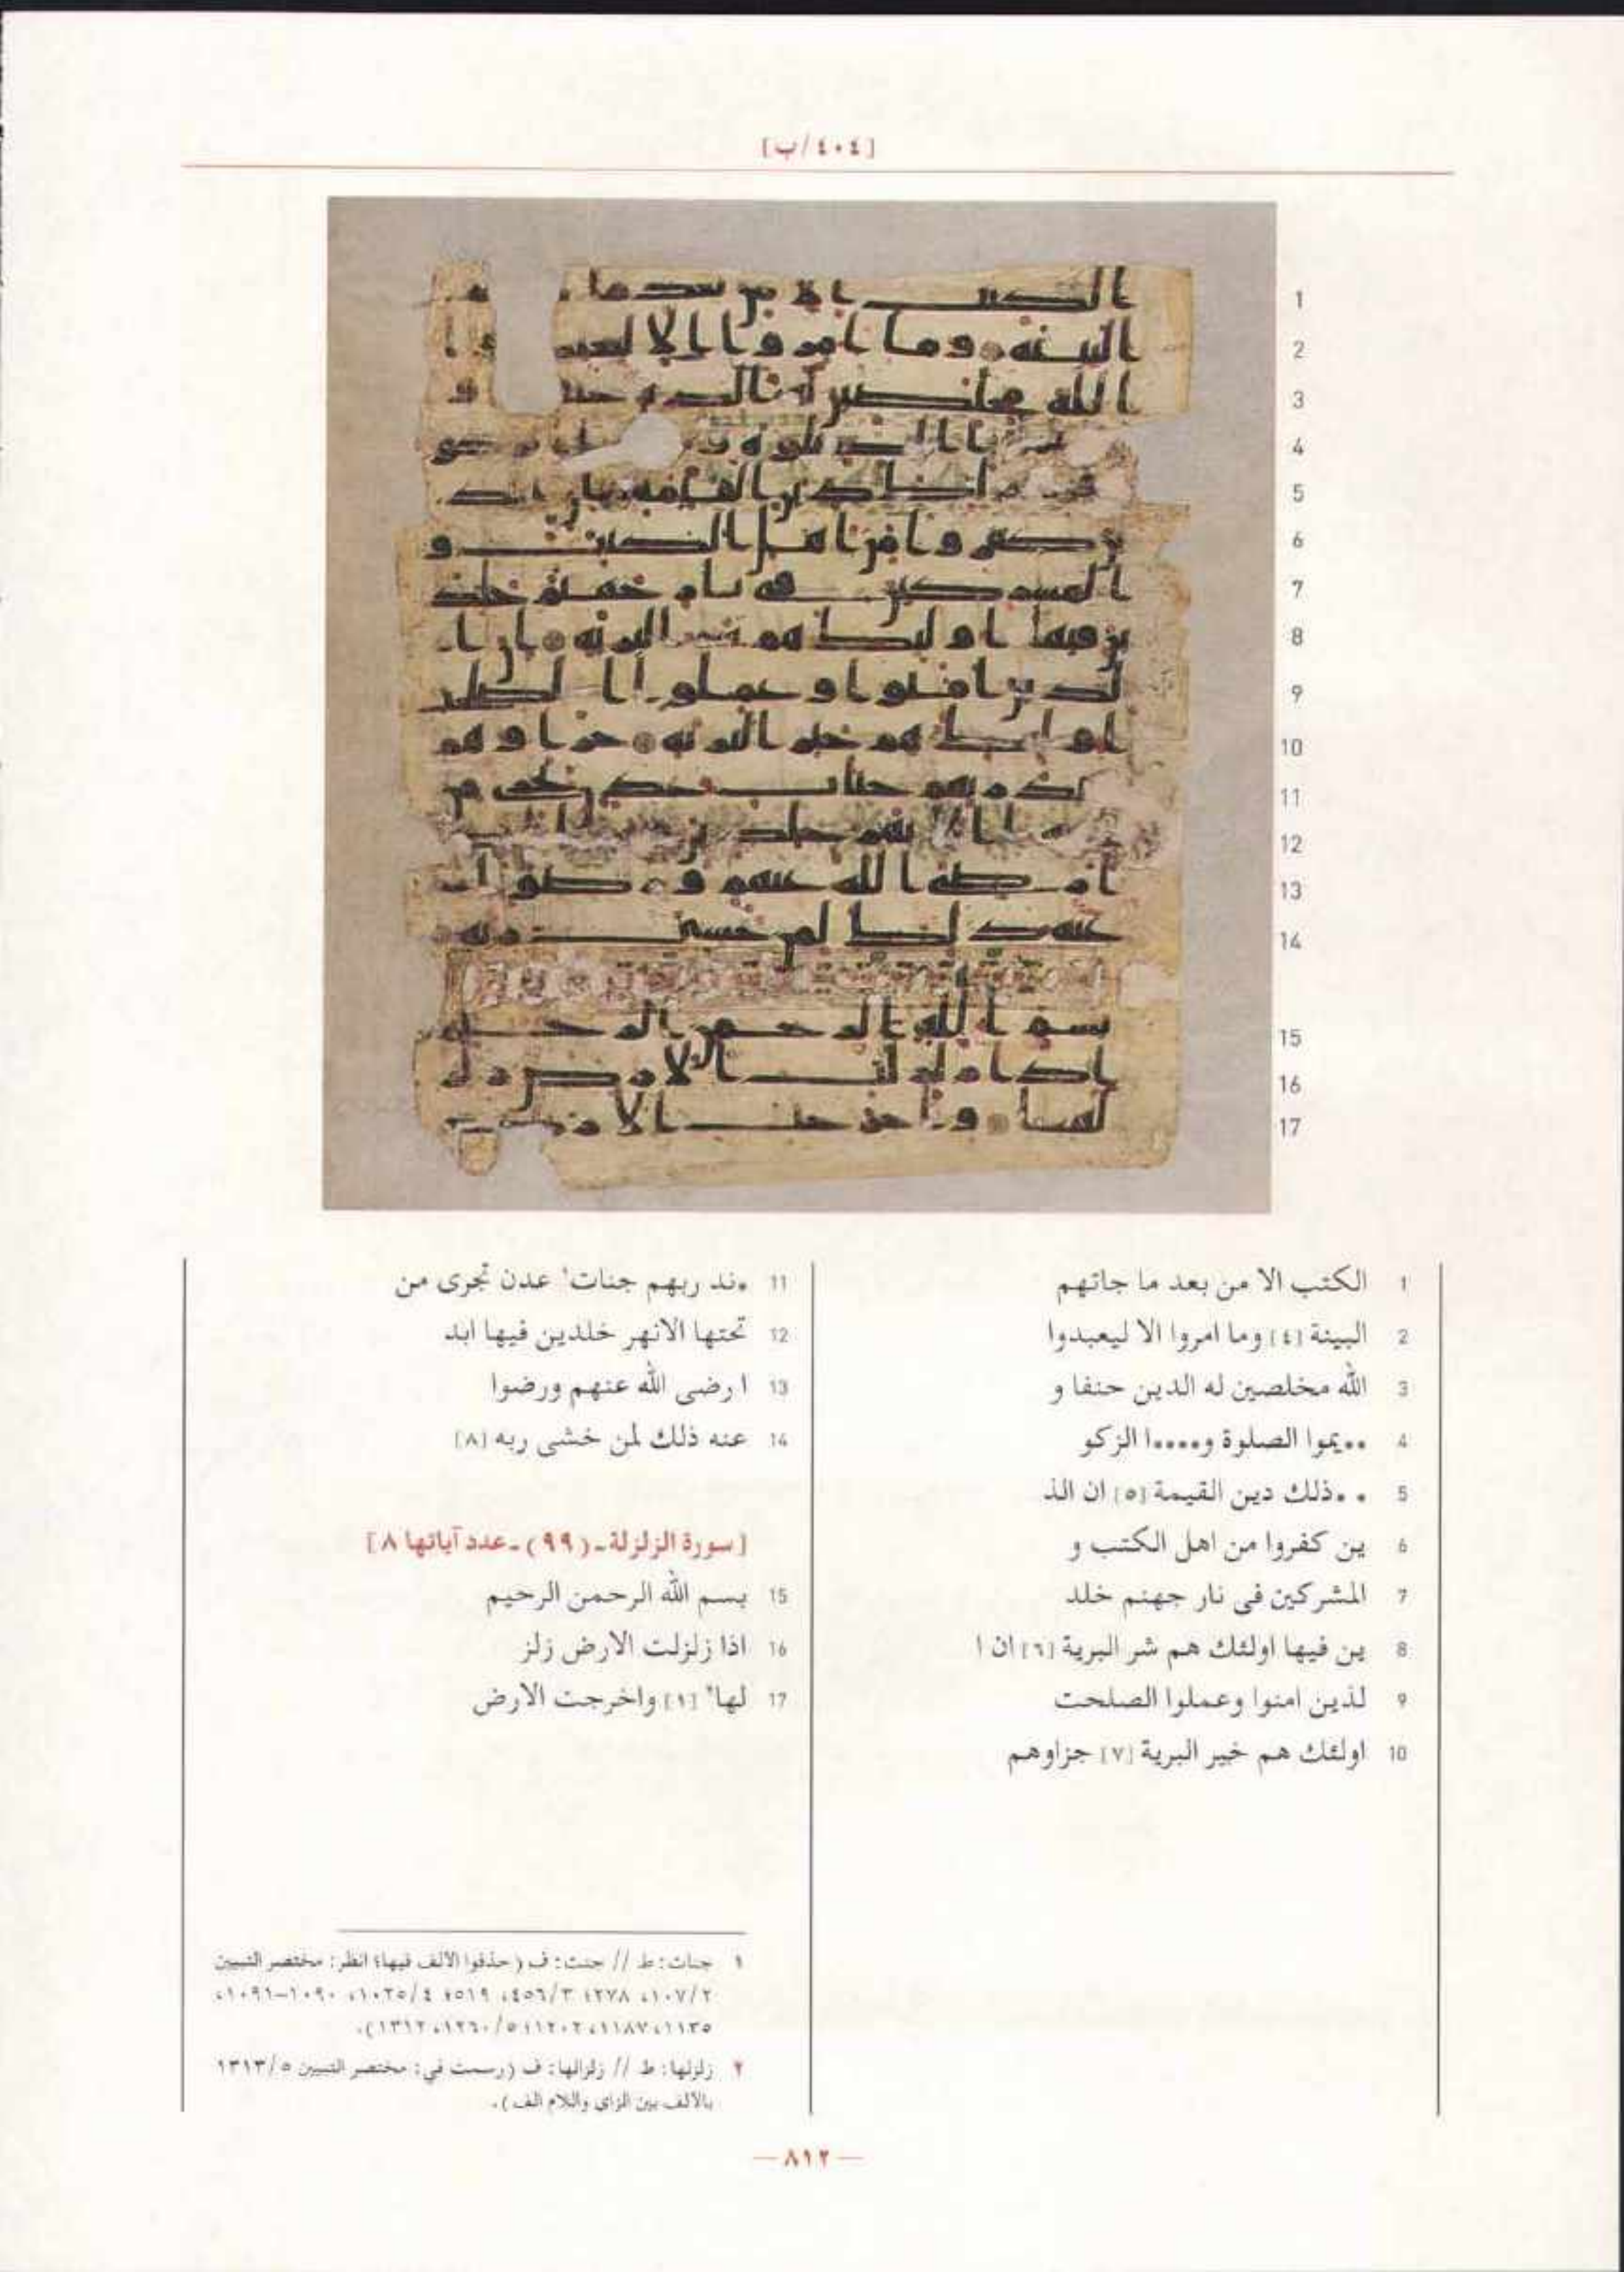 [٤٠٤/ب]
1 الكتب الا من بعد ما جاتهم
2 البينة [٤] وما امروا الا ليعبدوا
3 الله مخلصين له الدين حنفا و
4 ..يموا الصلوة و....ا الزكو
5 . .ذلك دين القيمة [٥] ان الذ
6 ين كفروا من اهل الكتب و
7 المشركين فى نار جهنم خلد
8 ين فيها اولئك هم شر البرية [٦] ان ا
9 لذين امنوا وعملوا الصلحت
10 اولئك هم خير البرية [٧] جزاوهم
11 .ند ربهم جنات١ عدن تجرى من
12 تحتها الانهر خلدين فيها ابد
13 ا رضى الله عنهم ورضوا
14 عنه ذلك لمن خشى ربه [٨]
[سورة الزلزلة ـ (٩٩) ـ عدد آياتها ٨]
15 بسم الله الرحمن الرحيم
16 اذا زلزلت الارض زلز
17 لها٢ [١] واخرجت الارض
١ جنات: ط // جنت: ف (حذفوا الألف فيها؛ انظر: مختصر التبيين
٢/١٠٧، ٢٧٨؛ ٣/٤٥٦، ٥١٩؛ ٤/١٠٢٥، ١٠٩٠-١٠٩١،
١١٣٥، ١١٨٧، ١٢٠٢؛ ٥/١٢٦٠، ١٣١٢).
٢ زلزلها: ط // زلزالها: ف (رسمت في: مختصر التبيين ٥/١٣١٣
بالألف بين الزاي واللام ألف).
— ٨١٢ —